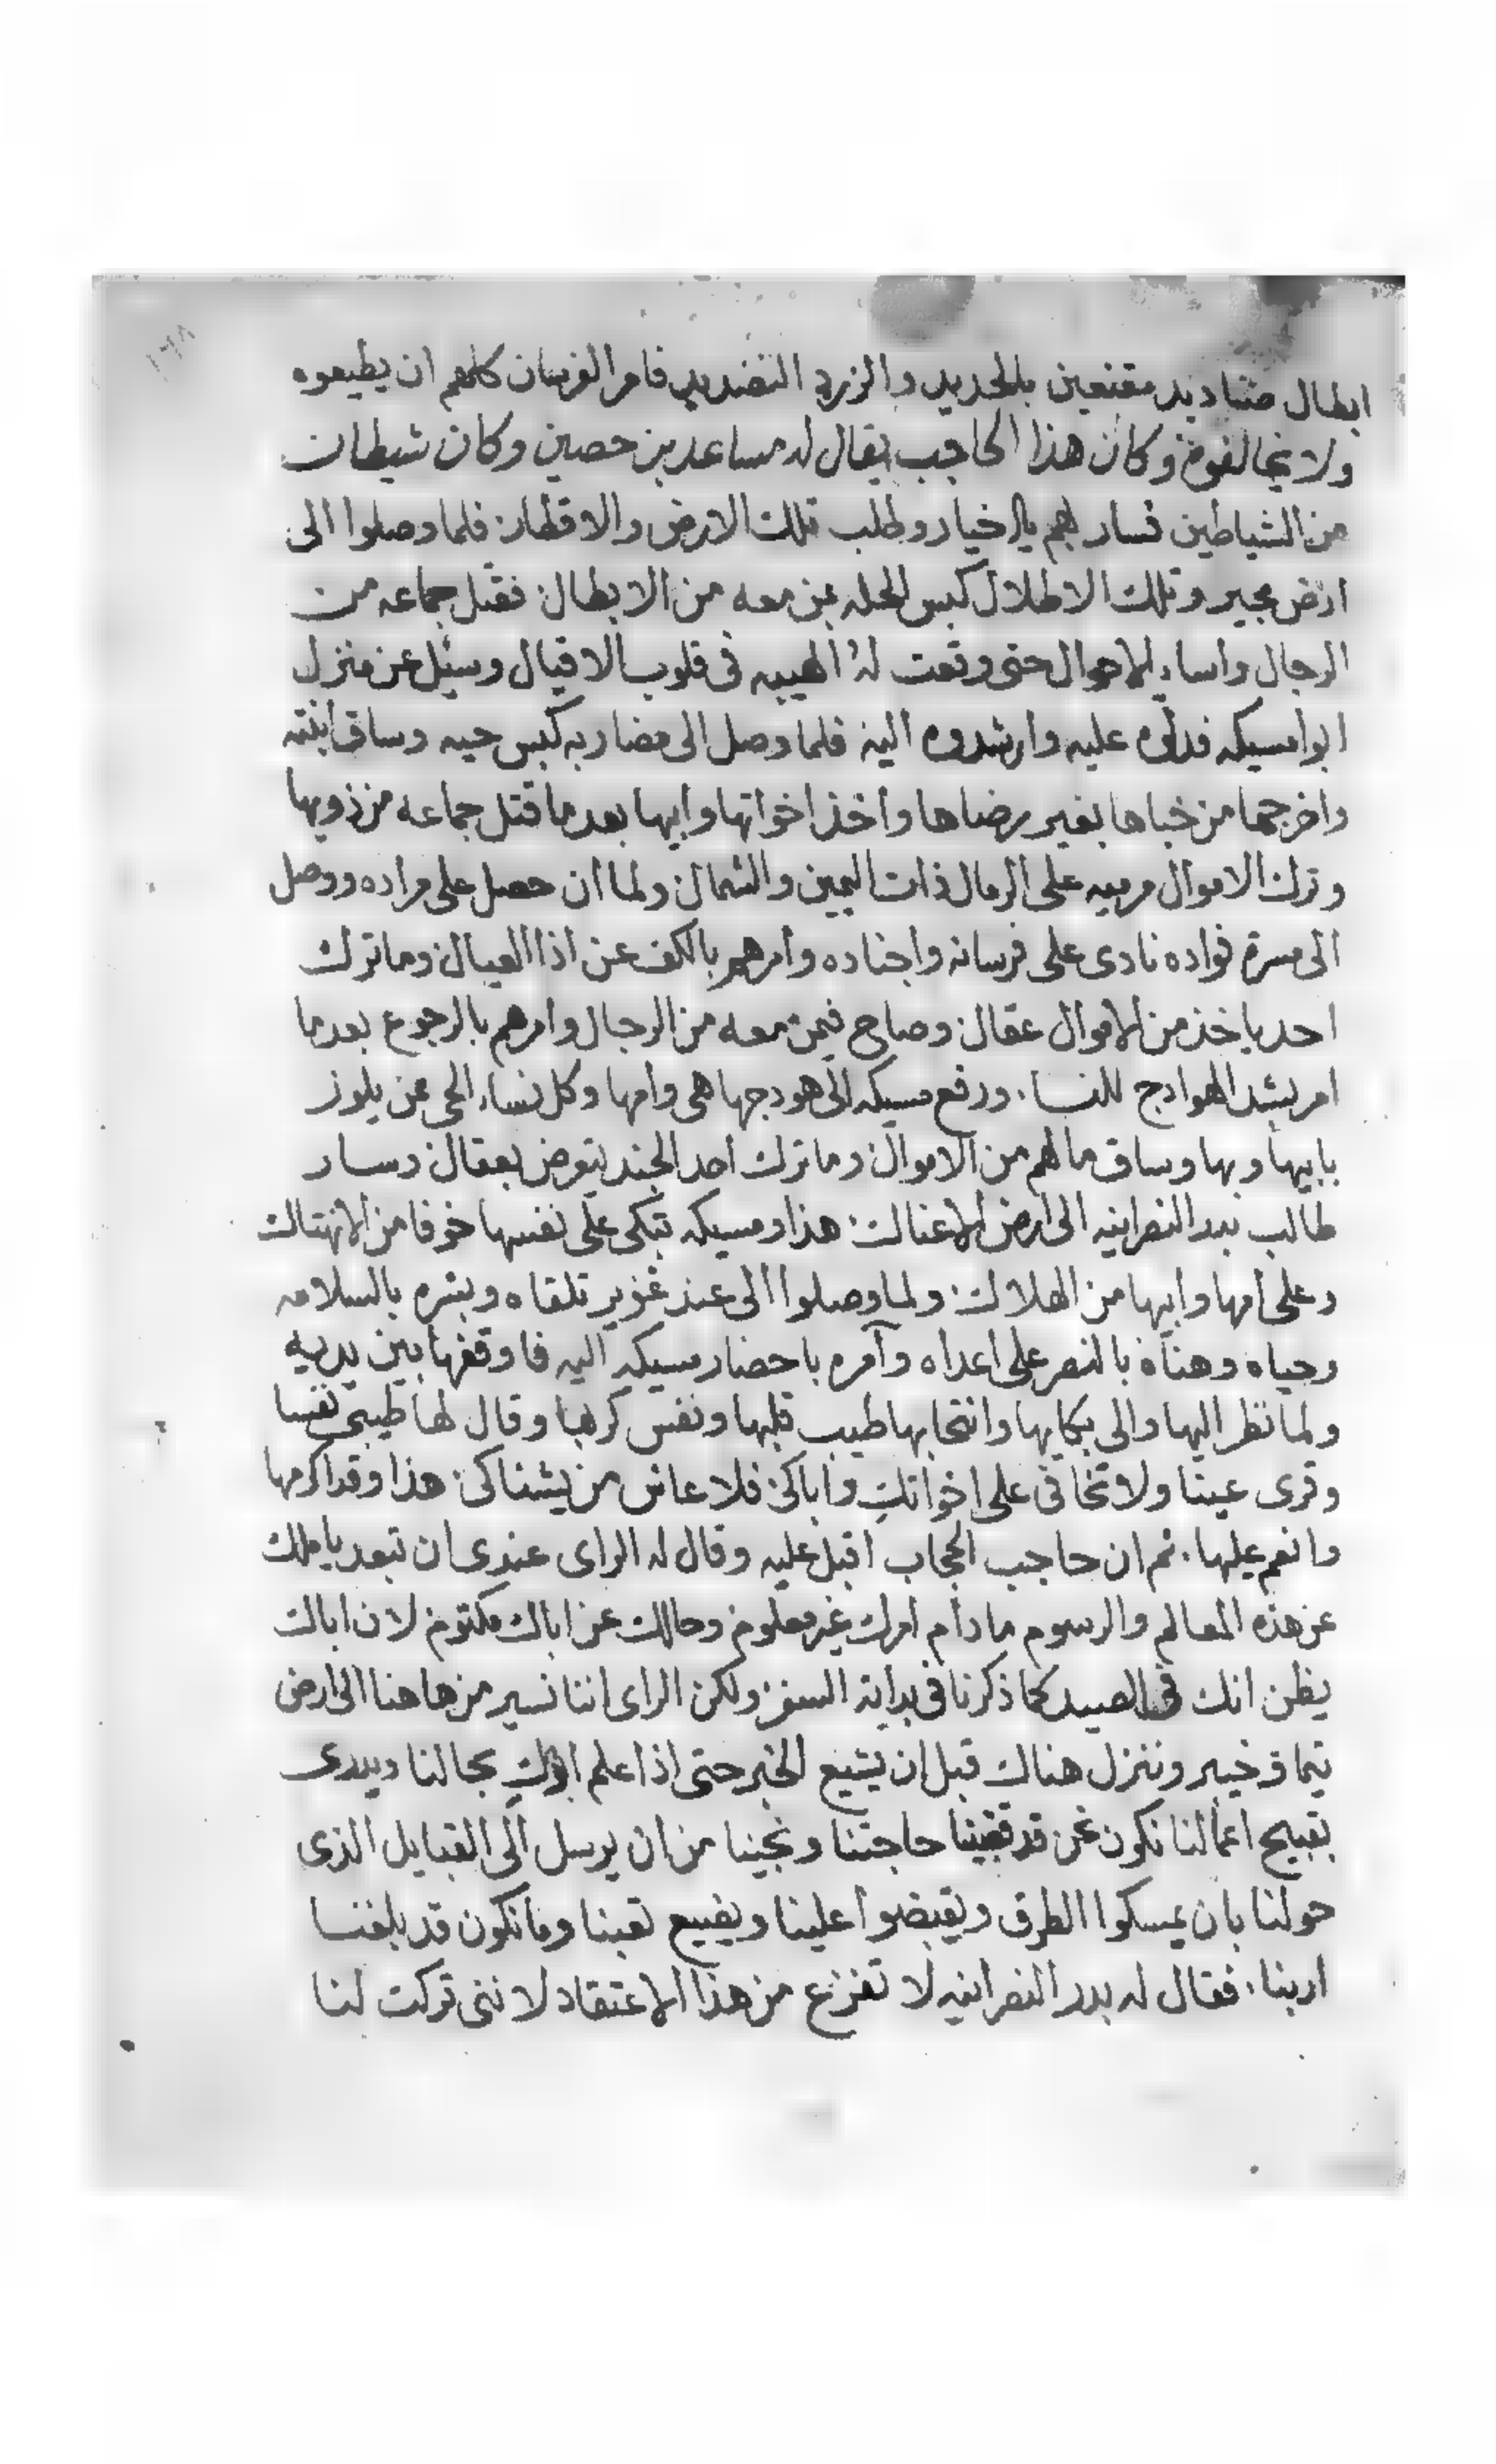 ١٦٨
ابطال صناديد مقنعين بالحديد والزرد النضيد فامر الفرسان كلهم ان يطيعوه
ولا يخالفوه وكان هذا الحاجب يقال له مساعد بن حصين وكان شيطان
من الشياطين فسار بهم يالاخيار وطلب تلك الارض والاقطار فلما وصلوا الى
ارض مجير وتلك الاطلال كبس الحله بمن معه من الابطال فقتل جماعه من
الرجال واساء الاحوال حتى وقعت له الهيبه فى قلوب الاقيال وسئل عن منزل
ابوا مسيكه فدلوه عليه وارشدوه اليه فلما وصل الى مضاربه كبس حيه وساق ابنته
واخرجها من خباها بغير رضاها وأخذ اخواتها وابيها بعد ما قتل جماعه من ذويها
وترك الاموال مرميه على الرمال ذات اليمين والشمال ولما ان حصل على مراده ووصل
الى مسرة فواده نادى على فرسانه واجناده وأمرهم بالكف عن اذا العيال وما ترك
احد ياخذ من الاموال عقال وصاح فيمن معه من الرجال وامرهم بالرجوع بعد ما
امر بشد الهوادج للنساء ورفع مسيكه الى هودجها هى وامها وكل نساء الحى ممن يلوز
بابيها وبها وساق مالهم من الاموال وما ترك احد الجند يتعرض بعقال وسار
طالب بدر النصرانيه الى ارض الاعناك هذا ومسيكه تبكى على نفسها خوفا من الانهتاك
وعلى امها وابيها من الهلاك ولما وصلوا الى عند عزيز تلقاه وبشره بالسلامه
وحياه وهناه بالنصر على اعداه وآمره باحضار مسيكه اليه فاوقفها بين يديه
ولما نظر اليها والى بكايها وانتحابها طيب قلبها ونفس كربها وقال لها طيبى نفسا
وقرى عينا ولا تخافى على اخواتك واباكى فلا عاش من يشناكى هذا وقد اكرمها
وانعم عليها ثم ان حاجب الحجاب اقبل عليه وقال له الراى عندى ان تبعد يا ملك
عن هذه المعالم والرسوم ما دام امرك غير معلوم وحالك عن اباك مكتوم لان اباك
يظن انك فى الصيد كما ذكرنا فى بداية السفر ولكن الراى اننا نسير من هاهنا الى ارض
تيما وخيبر وننزل هناك قبل ان يشيع الخبر حتى اذا علم ابوك بحالنا ويدرى
بقبيح اعمالنا نكون نحن قد قضينا حاجتنا ونجينا من ان يرسل الى القبايل الذى
حولنا بان يمسكوا الطرق ويقبضوا علينا ويضيع تعبنا وما نكون قد بلغنا
اربنا فقال له بدر النصرانيه لا تفزع من هذا الاعتقاد لاننى تركت لنا